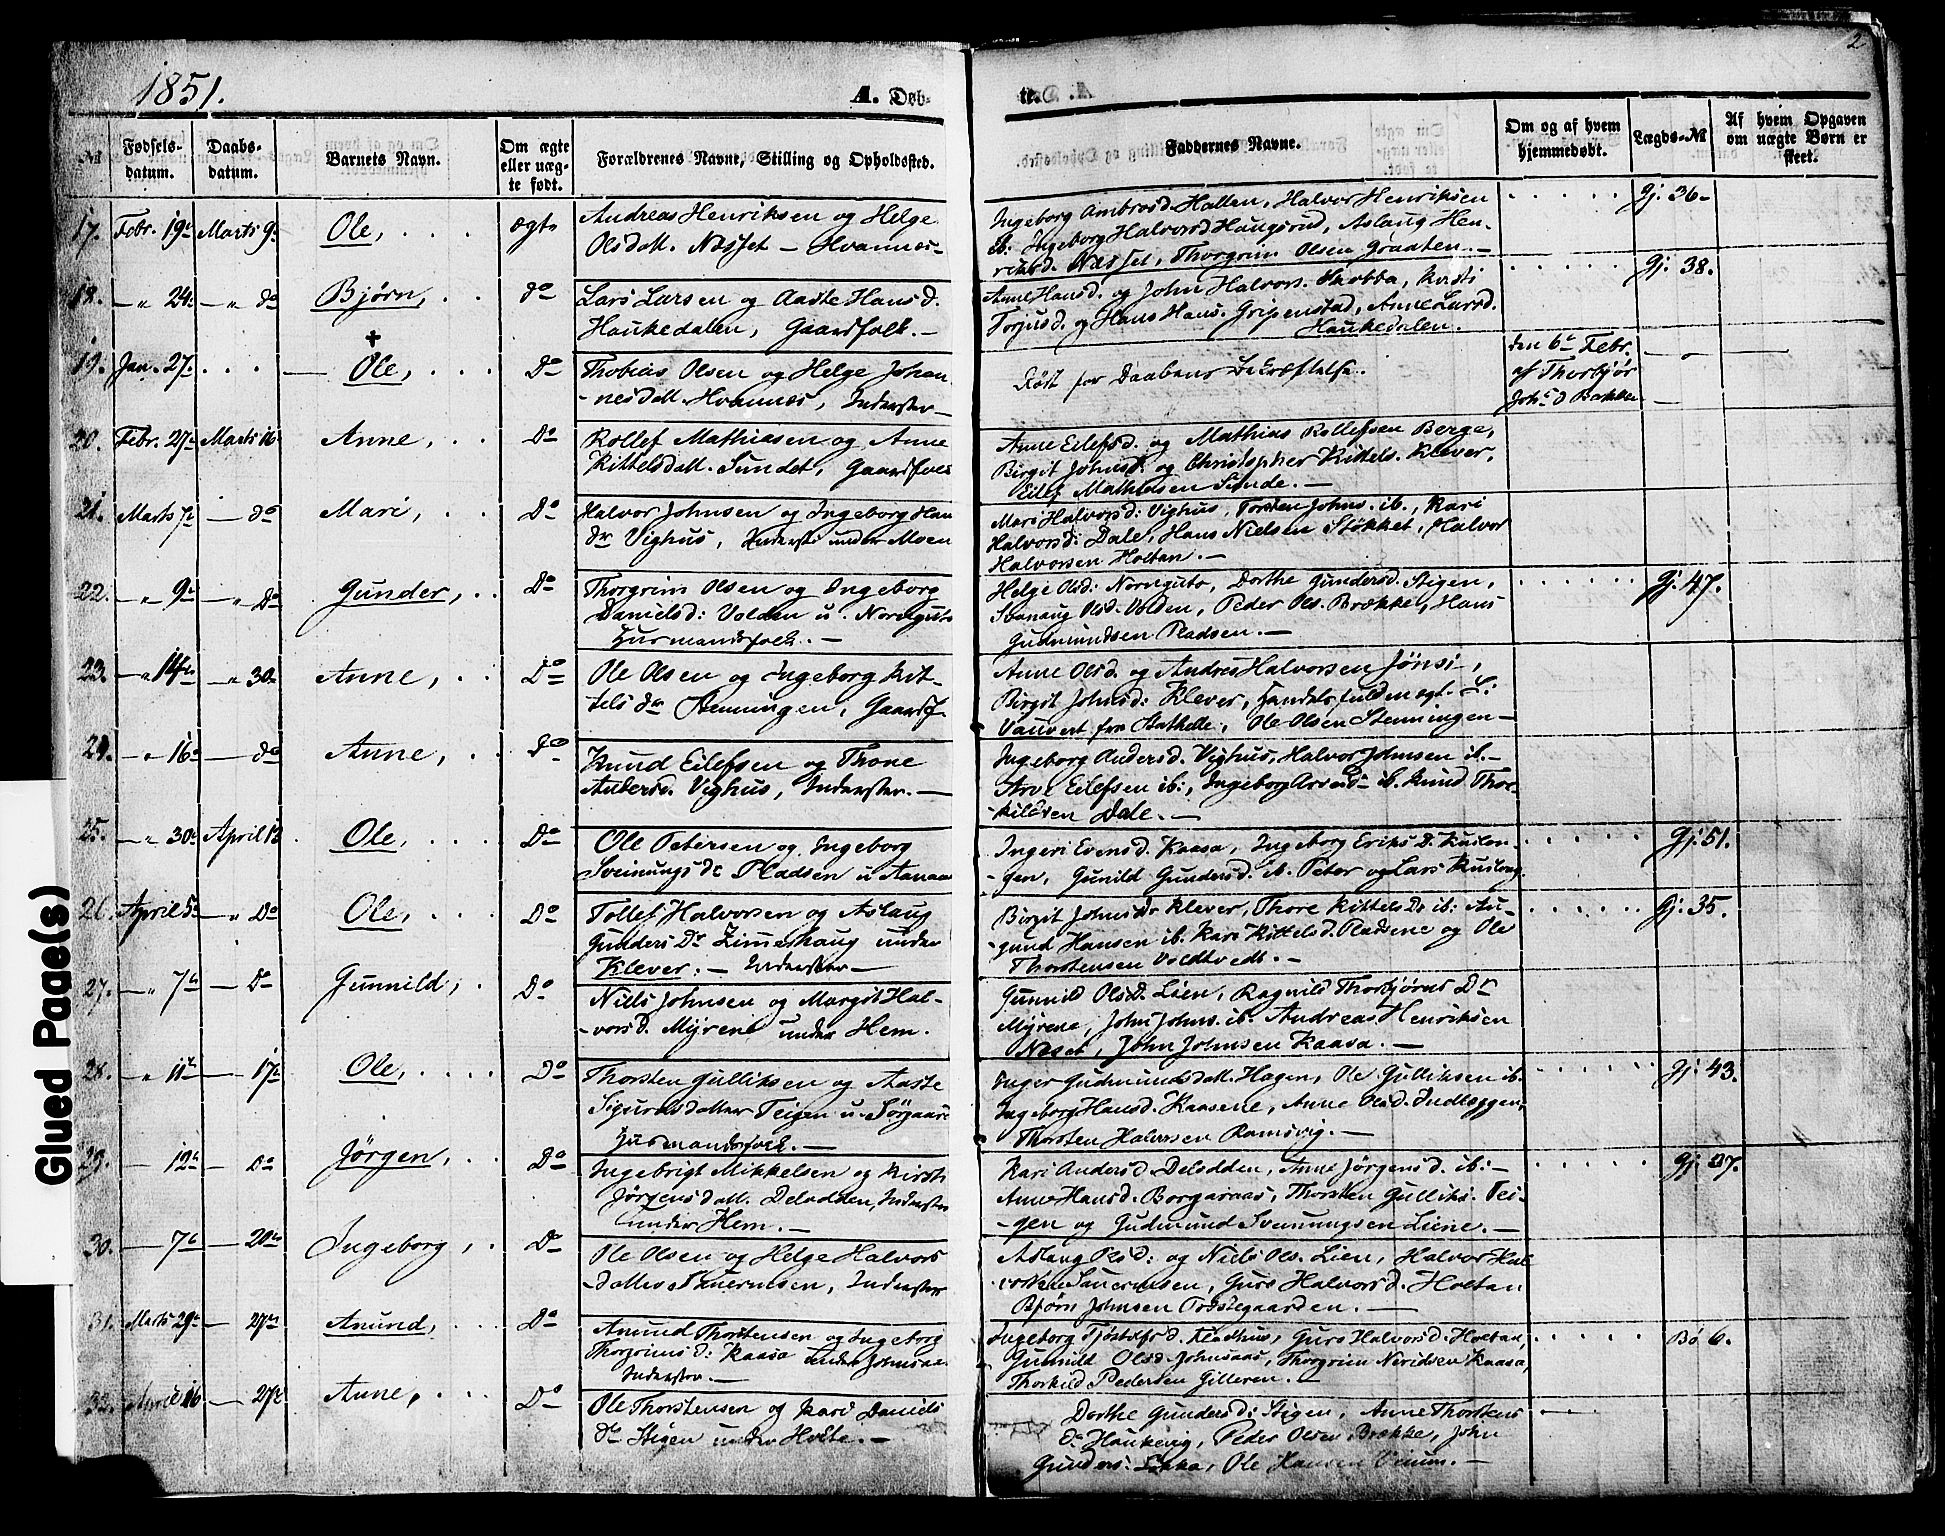 1851.
A. Døb-
te.
2
№
Fødsels-
datum.
Daabs-
datum.
Barnets Navn.
Om ægte
eller uæg-
te født.
Forældrenes Navne, Stilling og Opholdssted.
Faddernes Navne.
Om og af hvem
hjemmedøbt.
Lægds-№
Af hvem Opgaven
om uægte Børn er
skeet.
17. Febr. 19 Marts 9 Ole, ægte
Andreas Henriksen og Helge
Olsdatt. Næsset – Hvannes-
Ingeborg Ambrosd. Hallen, Halvor Henriksen
ib. Ingeborg Halvorsd Haugsrud, Aslaug Hen-
riksd. Næsset, Thorgrim Olsen Graaten. –
Gj. 36.
18. " 24. " do Bjørn, do
Lars Larsen og Aaste Hansd.
Haukedalen, Gaardfolk. –
Anne Hansd. og John Halvors. Skobba, Kirsti
Torjusd. og Hans Hans. Gripenstad, Anne Larsd.
Haukedalen.
Gj. 38.
19. Jan. 27. Ole, Do
Thobias Olsen og Helge Johan-
nesdatt. Hvannes, Inderster –
Røst for Daabens Bekræftelse.
den 6te Febr.
af Thorbjør
Joh. d Bakken
20. Febr. 27 Marts 16 Anne, Do
Rollef Mathiesen og Anne
Kittelsdatt. Sundet, Gaardfolk
Anne Eilefsd. og Mathias Rollefsen Berge,
Birgit Johnsd. og Christopher Kittels. Klever,
Eilef Mathiesen Sunde. –
21. Marts 7 – do Mari, Do
Halvor Johnsen og Ingeborg Han
dr Vighus, Inderste under Moen
Mari Halvorsd: Vighus, Torsten Johns. ib., Kari
Halvorsd: Dale, Hans Nielsen Stokket, Halvor
Halvorsen Holtan. –
22. " 9 " Do Gunder, Do
Thorgrim Olsen og Ingeborg
Danielsd: Volden u. Nordgute
Huusmandsfolk. –
Helge Olsd: Nordgute, Dorthe Gundersd. Stigen,
Olsd. Volden, Peder Ols. Brække, Hans
Gudmundsen Pladsen. –
Gj. 47.
23. " 14 " 30. Anne, Do
Ole Olsen og Ingeborg Kit-
tels dr Stenningen, Gaardf.
Anne Olsd. og Andres Halvorsen Jønsi,
Birgit Johnsd: Klever, Handelsfuldmægt. L:
Vauvert fra Stathelle, Ole Olsen Stenningen –
24. " 16 – do Anne, Do
Knud Eilefsen og Thone
Andersd. Vighus, Inderster. –
Ingeborg Andersd. Vighus, Halvor Johnsen ib. –
Arve Eilefsen ib:, Ingeborg ib. Knud Thor-
kildsen Dale. –
25. " 30 April 13 Ole, Do
Ole Petersen og Ingeborg
Sveinungs dr Pladsen u Aanaas
Ingeri Evensd. Kaasa, Ingeborg Eriks D.
gen, Gunild Gundersd. ib. Peter og Lars
Gj. 51.
26. April 5 " Do Ole, Do
Tollef Halvorsen og Aslaug
Gunders Dr Zimerhaug under
Klever: – Inderster –
Birgit Johnsdr Klever, Thore Kittels Dr ib: Au-
gund Hansen ib. Kari Kittelsd. Pladsene og Ole
Thorstensen Voldtvedt. –
Gj. 35.
27. " 7 – Do Gunnild, Do
Niels Johnsen og Margit Hal-
vorsd. Myrene under Hem.
Gunnild Olsd. Lien, Ragnild Thorbjørns Dr
Myrene, John Johns. ib. Andreas Henriksen
Næset, John Johnsen Kaasa. –
28. " 11 – 17 Ole, Do
Thorsten Gulliksen og Aaste
Sigurdsdatter Teigen u. Sørgaar
Husmandsfolk. –
Inger Gudmundsdatt. Hagen, Ole Gulliksen ib.
Ingeborg Hansd. Kaasene, Anne Olsd. Indleggen,
Thorsten Halvorsen Ramsvig. –
Gj. 43.
29. – 12 – do Jørgen, Do
Ingebrigt Mikkelsen og Kirsti
Jørgensdatt. Delodden, Inderster
under Hem. –
Kari Andersd. Delodden, Anne Jørgensd. ib: –
Anne Hansd. Borgaraas, Thorsten Gulliks. Tei-
gen og Gudmund Sveinungsen Liene. –
30. – 7 – 20 Ingeborg, Do
Ole Olsen og Helge Halvors
datter, Inderster
Aslaug Olsd: og Niels Ols. Lien, Halvor Hal
Guro Halvorsd. Holtan
Bjørn Johnsen Præstegaarden. –
31. Marts 29 – 27 Anund, Do
Anund Thorstensen og Ingeborg
Thorgrimsd: Kaasa under Johnsaas
Inderster. –
Ingeborg Tjøstolfsd. Kladhus, Guro Halvorsd. Holtan,
Gunnild Olsd. Johnsaas, Thorgrim Neridsen Kaasa,
Thorkild Pedersen Gilleren. –
Bø 6.
32. April 16 – 27 Anne, Do
Ole Thorstensen og Karo Daniels
dr Stigen under Holte. –
Dorthe Gundersd: Stigen, Anne Thorstens
dr Haukevig, Peder Olsen Brække, John
Gunders: Løkka, Ole Hansen
Glued Page(s)